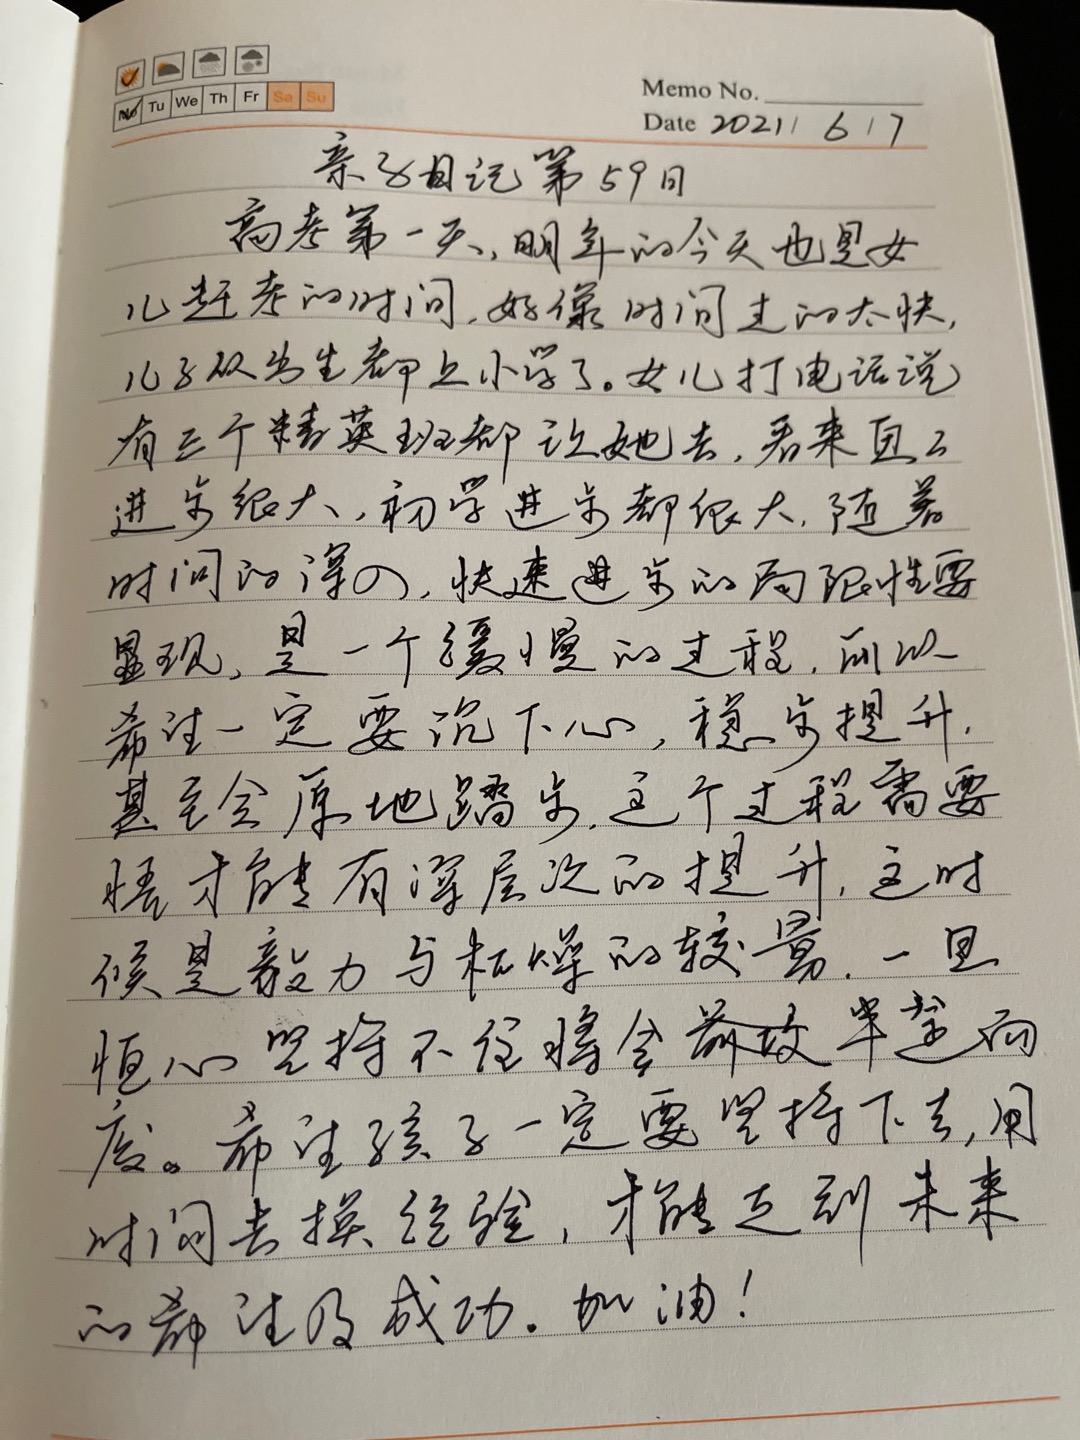 Mo Tu We Th Fr Sa Su
Memo No.
Date 2021/6/7
亲子日记第59日
高考第一天,明年的今天也是女
儿赶考的时间,好像时间过的太快,
儿子从出生都上小学了。女儿打电话说
有三个精英班都让她去,看来自己
进步很大,初学进步都很大,随着
时间的深入,快速进步的局限性要
显现,是一个缓慢的过程,所以
希望一定要沉下心,稳步提升,
甚至会原地踏步,这个过程需要
悟才能有深层次的提升,这时
候是毅力与枯燥的较量,一旦
恒心坚持不住将会半途而
废。希望孩子一定要坚持下去,用
时间去换经验,才能走到未来
的希望及成功。加油!